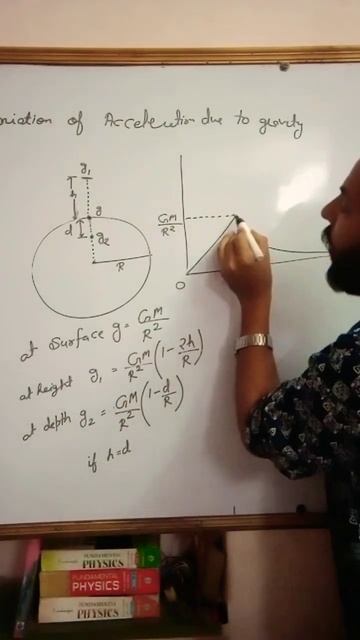 riation of Acceleration due to gravity
g₁
h
g
d
g₂
R
GM/R²
O
at Surface g = GM/R²
at height g₁ = GM/R² (1 - 2h/R)
at depth g₂ = GM/R² (1 - d/R)
if h=d
FUNDAMENTAL
PHYSICS
FUNDAMENTAL
PHYSICS
FUNDAMENTAL
PHYSICS